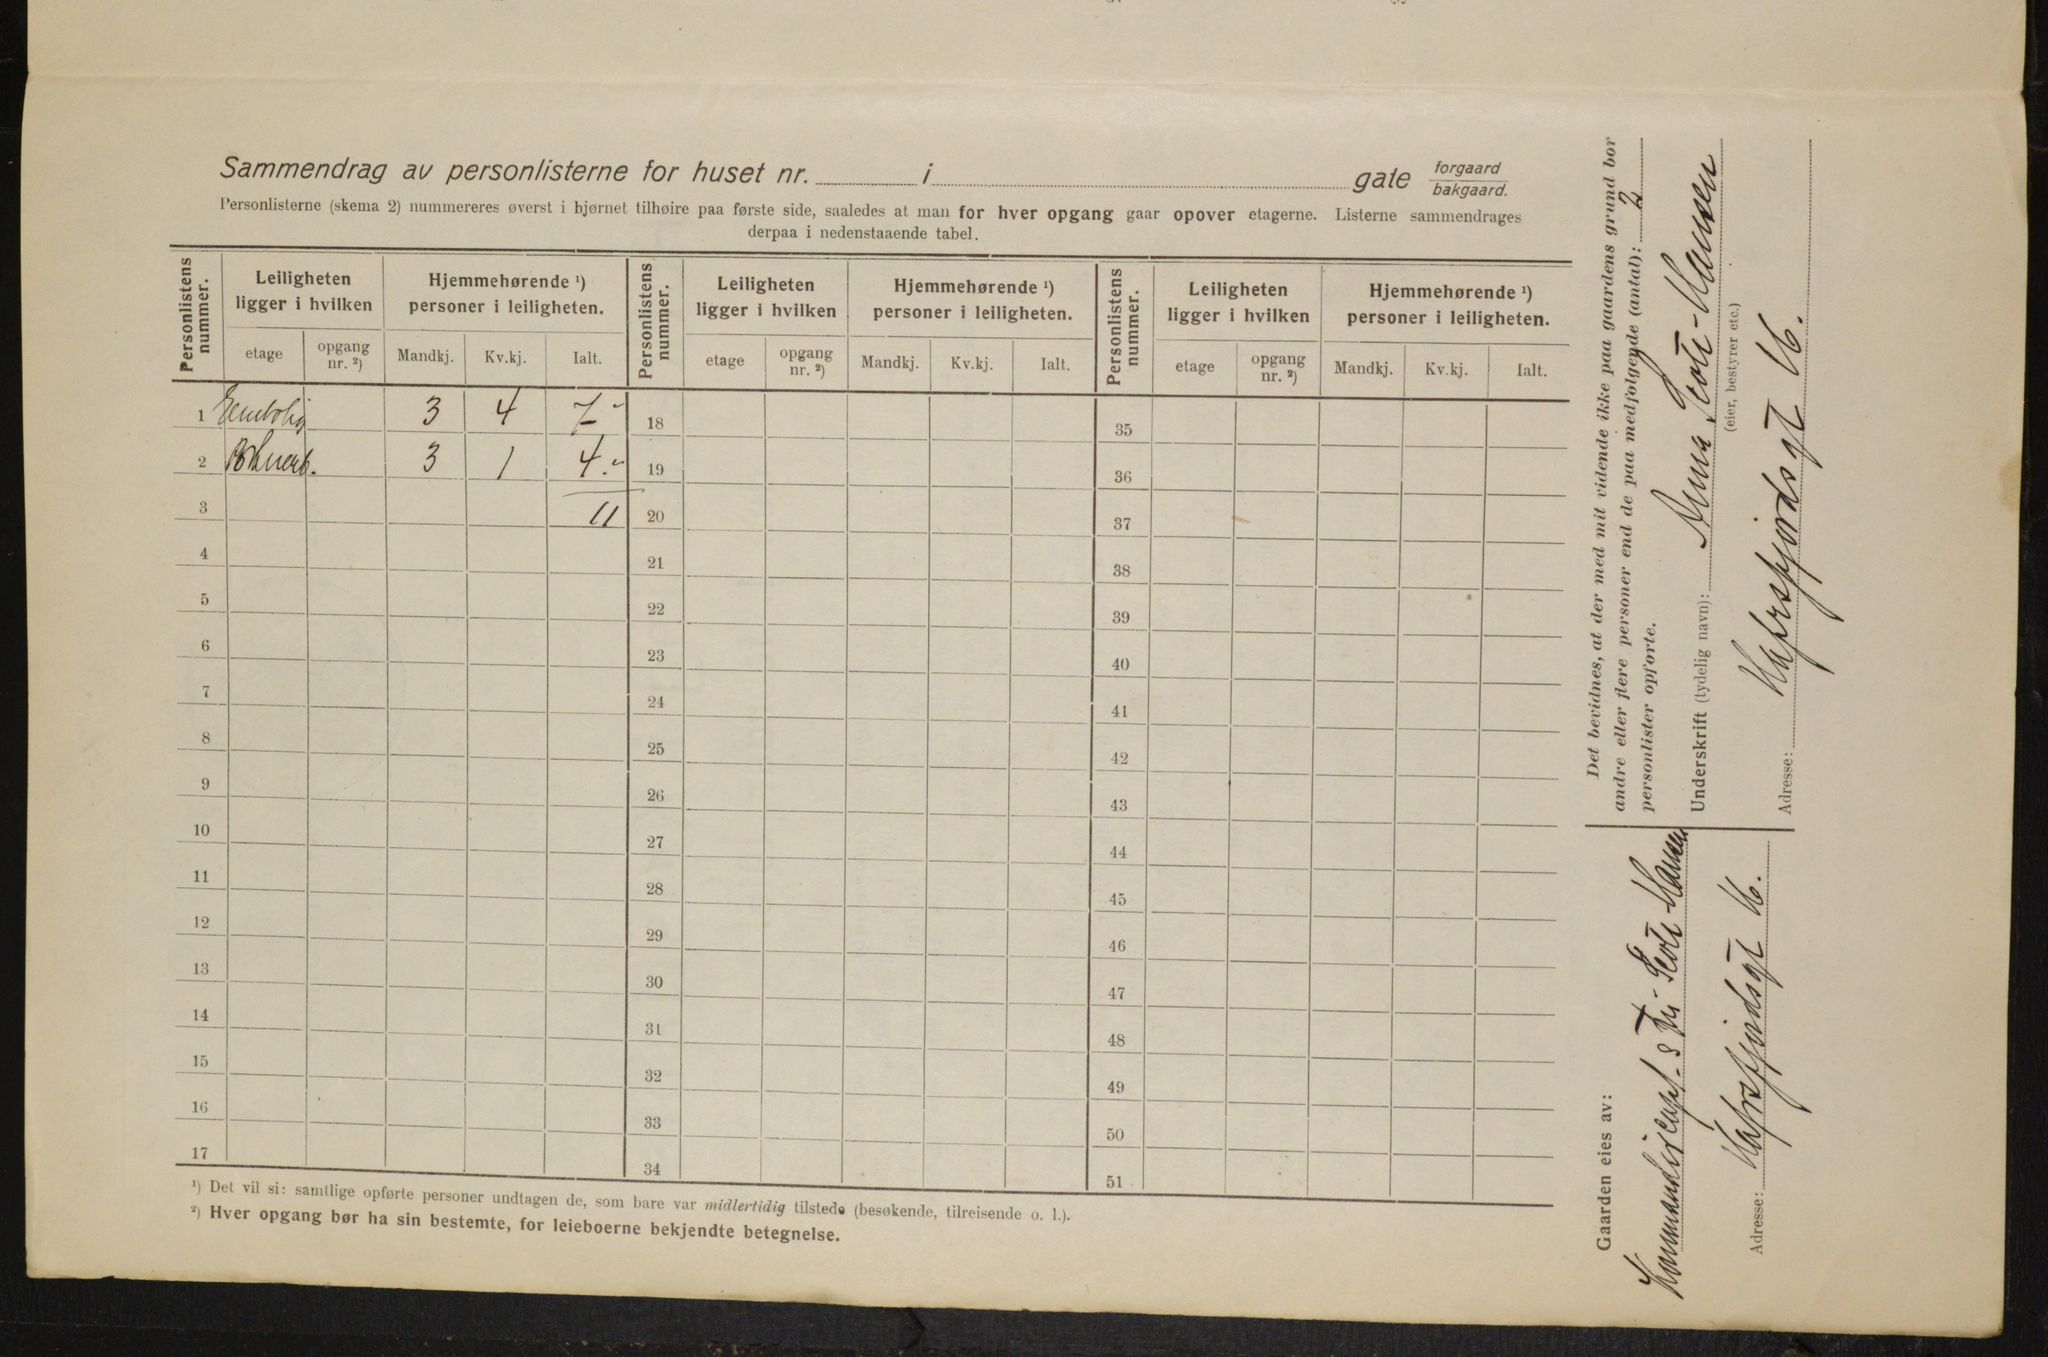 Sammendrag av personlisterne for huset nr. i gate forgaard bakgaard.
Personlisterne (skema 2) nummereres øverst i hjørnet tilhøire paa første side, saaledes at man for hver opgang gaar opover etagerne. Listerne sammendrages
derpaa i nedenstaaende tabel.
Personlistens nummer. Leiligheten ligger i hvilken Hjemmehørende ¹) personer i leiligheten. Personlistens nummer. Leiligheten ligger i hvilken Hjemmehørende ¹) personer i leiligheten. Personlistens nummer. Leiligheten ligger i hvilken Hjemmehørende ¹) personer i leiligheten.
etage opgang nr. ²) Mandkj. Kv.kj. Ialt. etage opgang nr. ²) Mandkj. Kv.kj. Ialt. etage opgang nr. ²) Mandkj. Kv.kj. Ialt.
1 3 4 7 18 35
2 3 1 4 19 36
3 11 20 37
4 21 38
5 22 39
6 23 40
7 24 41
8 25 42
9 26 43
10 27 44
11 28 45
12 29 46
13 30 47
14 31 48
15 32 49
16 33 50
17 34 51
¹) Det vil si: samtlige opførte personer undtagen de, som bare var midlertidig tilstede (besøkende, tilreisende o. l.).
²) Hver opgang bør ha sin bestemte, for leieboerne bekjendte betegnelse.
Det bevidnes, at der med mit vidende ikke paa gaardens grund bor
andre eller flere personer end de paa medfølgende (antal): 2
personlister opførte.
Underskrift (tydelig navn): Anna Scott-Hansen
(eier, bestyrer etc.)
Adresse: Hafrsfjordsgt 16.
Gaarden eies av:
Scott-Hansen
Adresse: Hafrsfjordsgt 16.